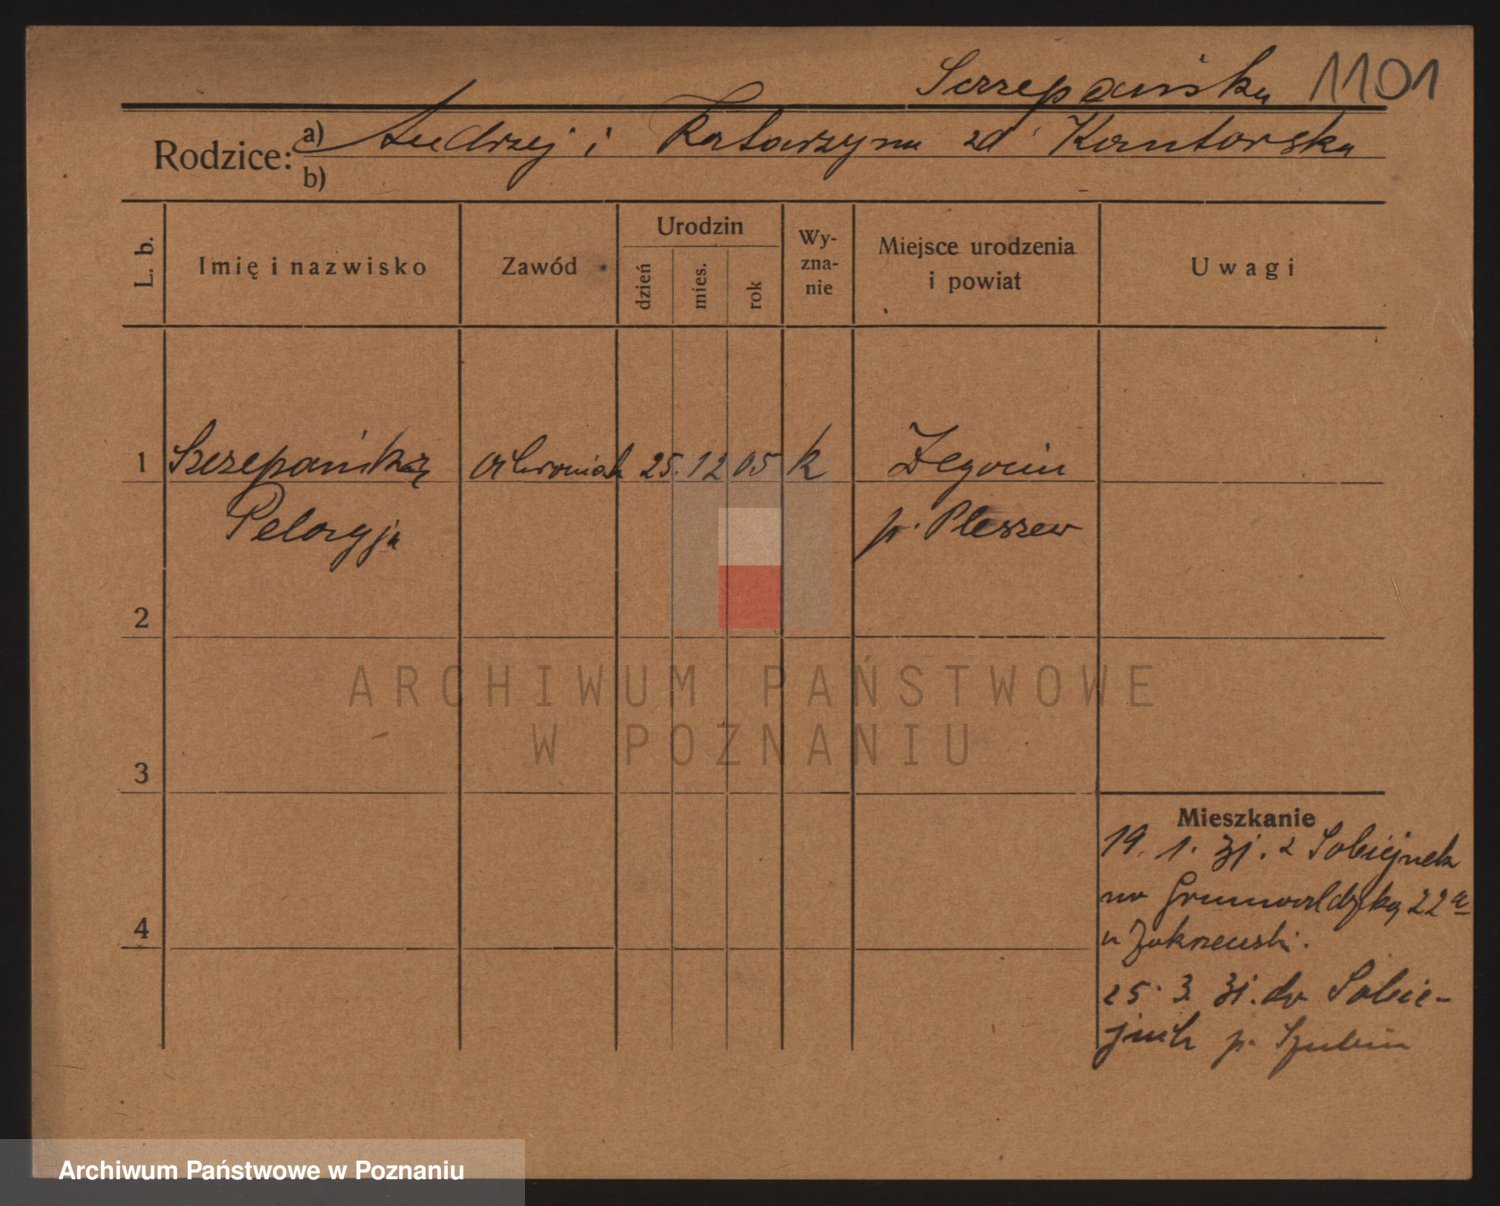 Szczepańska 1101
Rodzice: a) Andrzej i Katarzyna zd Kantorska
b)
L. b. Imię i nazwisko Zawód Urodzin dzień mies. rok Wyznanie Miejsce urodzenia i powiat Uwagi
1 Szczepańska 25. 12 05 k Żegocin
Pelagja p. Pleszew
2
ARCHIWUM PAŃSTWOWE
W POZNANIU
3
Mieszkanie
19. 1. 31. z Sobiejuch
na Grunwaldzką 22a
4
u Zakrzewski.
25. 3. 31. do Sobie-
juch p. Szubin
Archiwum Państwowe w Poznaniu